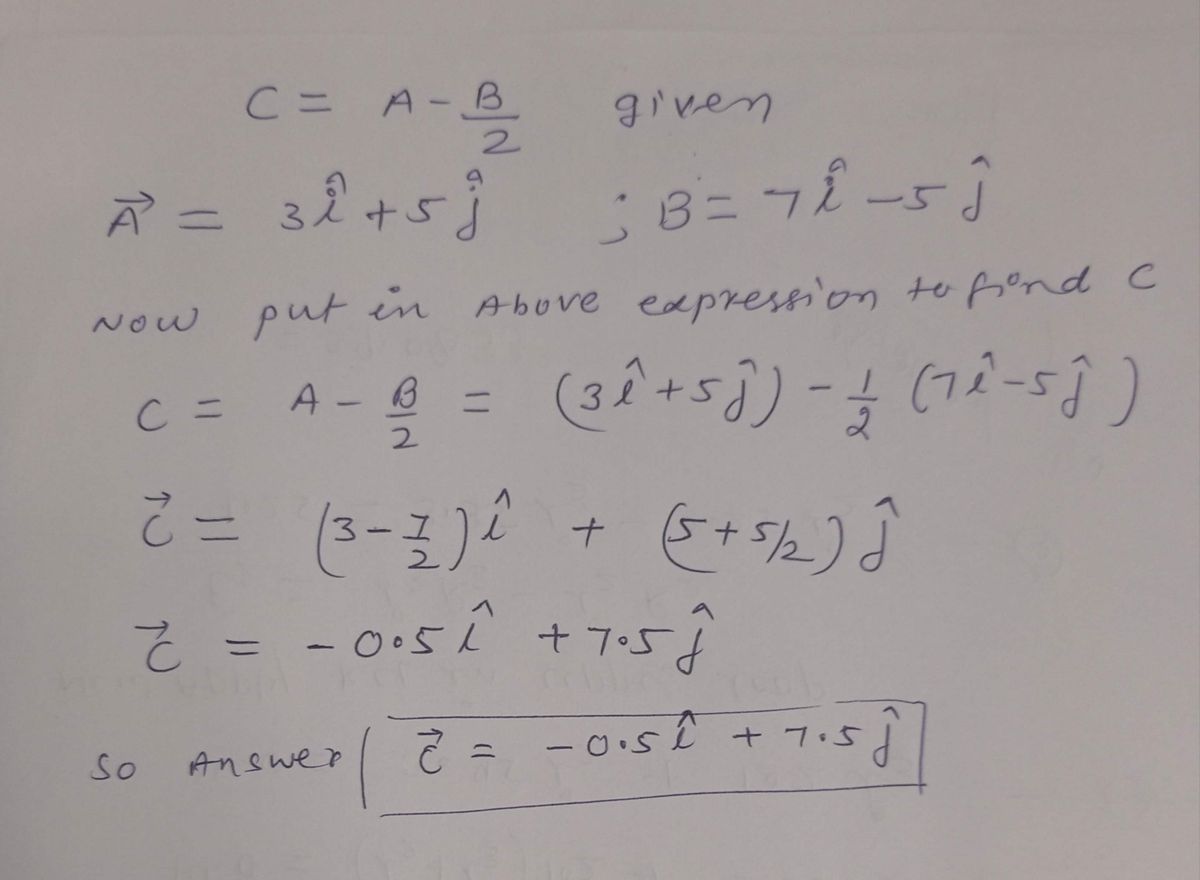 C = A - B/2 given
A⃗ = 3î + 5ĵ ; B = 7î - 5ĵ
Now put in Above expression to find C
C = A - B/2 = (3î + 5ĵ) - 1/2 (7î - 5ĵ)
C⃗ = (3 - 7/2)î + (5 + 5/2)ĵ
C⃗ = -0.5î + 7.5ĵ
So Answer C⃗ = -0.5î + 7.5ĵ